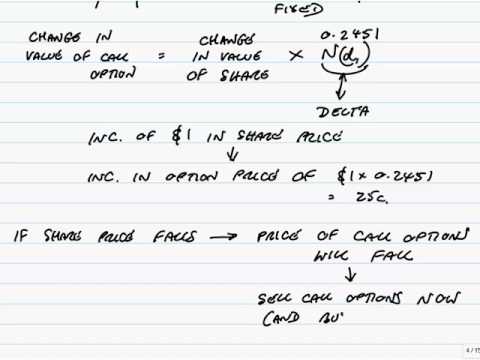 FIXED)
0.2451
CHANGE IN VALUE OF CALL OPTION = CHANGE IN VALUE OF SHARE × N(d₁)
DELTA
INC. OF $1 IN SHARE PRICE
↓
INC. IN OPTION PRICE OF $1 × 0.2451
= 25c.
IF SHARE PRICE FALLS → PRICE OF CALL OPTIONS
WILL FALL
↓
SELL CALL OPTIONS NOW
(AND BU
4 / 15